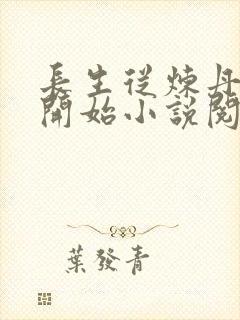 長生從煉丹
開始小說閱
葉發青